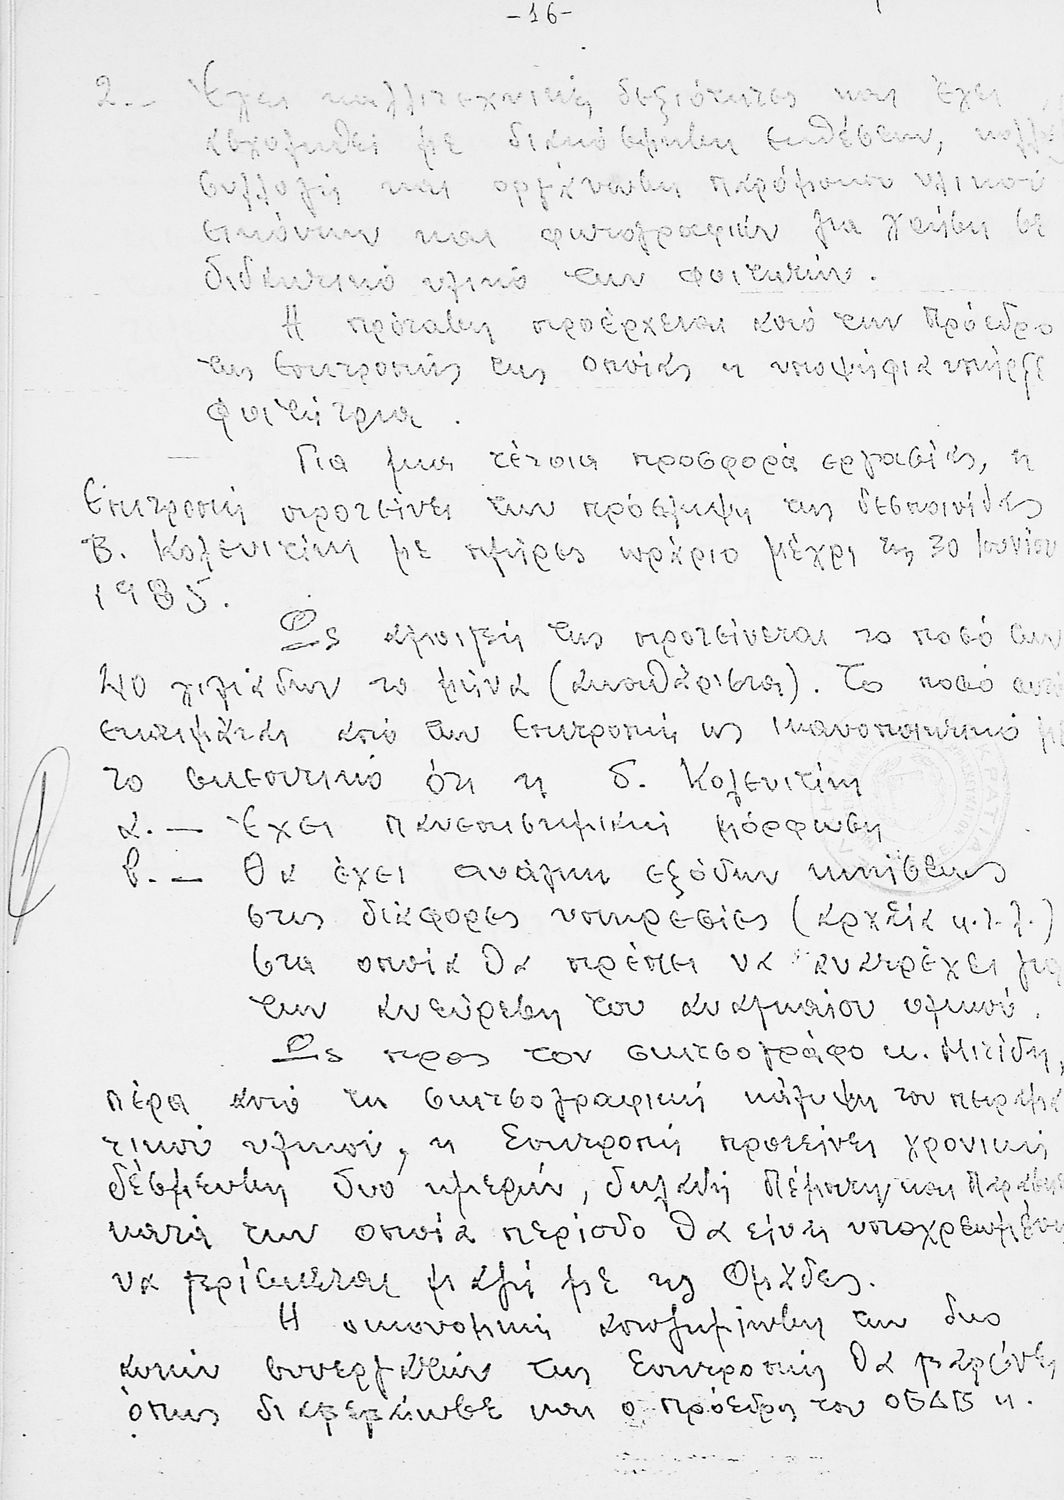 -16-
2.- Έχει καλλιτεχνικές δεξιότητες και έχει
ασχοληθεί με διακόσμηση εκθέσεων,
συλλογή και οργάνωση παρόμοιου υλικού
εικόνων και φωτογραφιών για χρήση σε
διδακτικό υλικό των φοιτητών.
Η πρόταση προέρχεται από την Πρόεδρο
της Επιτροπής της οποίας η υποψήφια υπήρξε
φοιτήτρια.
Για μια τέτοια προσφορά εργασίας, η
Επιτροπή προτείνει την πρόσληψη της δεσποινίδας
Β. Κολενιτίνη με πλήρες ωράριο μέχρι τις 30 Ιουνίου
1985.
Ως αμοιβή της προτείνεται το ποσό των
40 χιλιάδων το μήνα (ακαθάριστα). Το ποσό αυτό
εκτιμάται από την Επιτροπή ως ικανοποιητικό με
το σκεπτικό ότι η δ. Κολενιτίνη
α.- Έχει πανεπιστημιακή μόρφωση
β.- Θα έχει ανάγκη εξόδων κινήσεως
στις διάφορες υπηρεσίες (αρχεία κ.λ.λ.)
στα οποία θα πρέπει να ανατρέχει για
την ανεύρεση του αναγκαίου υλικού.
Ως προς τον σκιτσογράφο κ. Μιτίδη,
πέρα από τη σκιτσογραφική κάλυψη του πειραμα
τικού υλικού, η Επιτροπή προτείνει χρονική
δέσμευση δυο ημερών, δηλαδή Πέμπτη και Παρασκε
κατά την οποία περίοδο θα είναι υποχρεωμένος
να βρίσκεται μαζί με τις Ομάδες.
Η οικονομική αποζημίωση των δυο
αυτών συνεργατών της Επιτροπής θα βαρύνει,
όπως διαβεβαίωσε και ο πρόεδρος του ΟΕΔΒ κ.